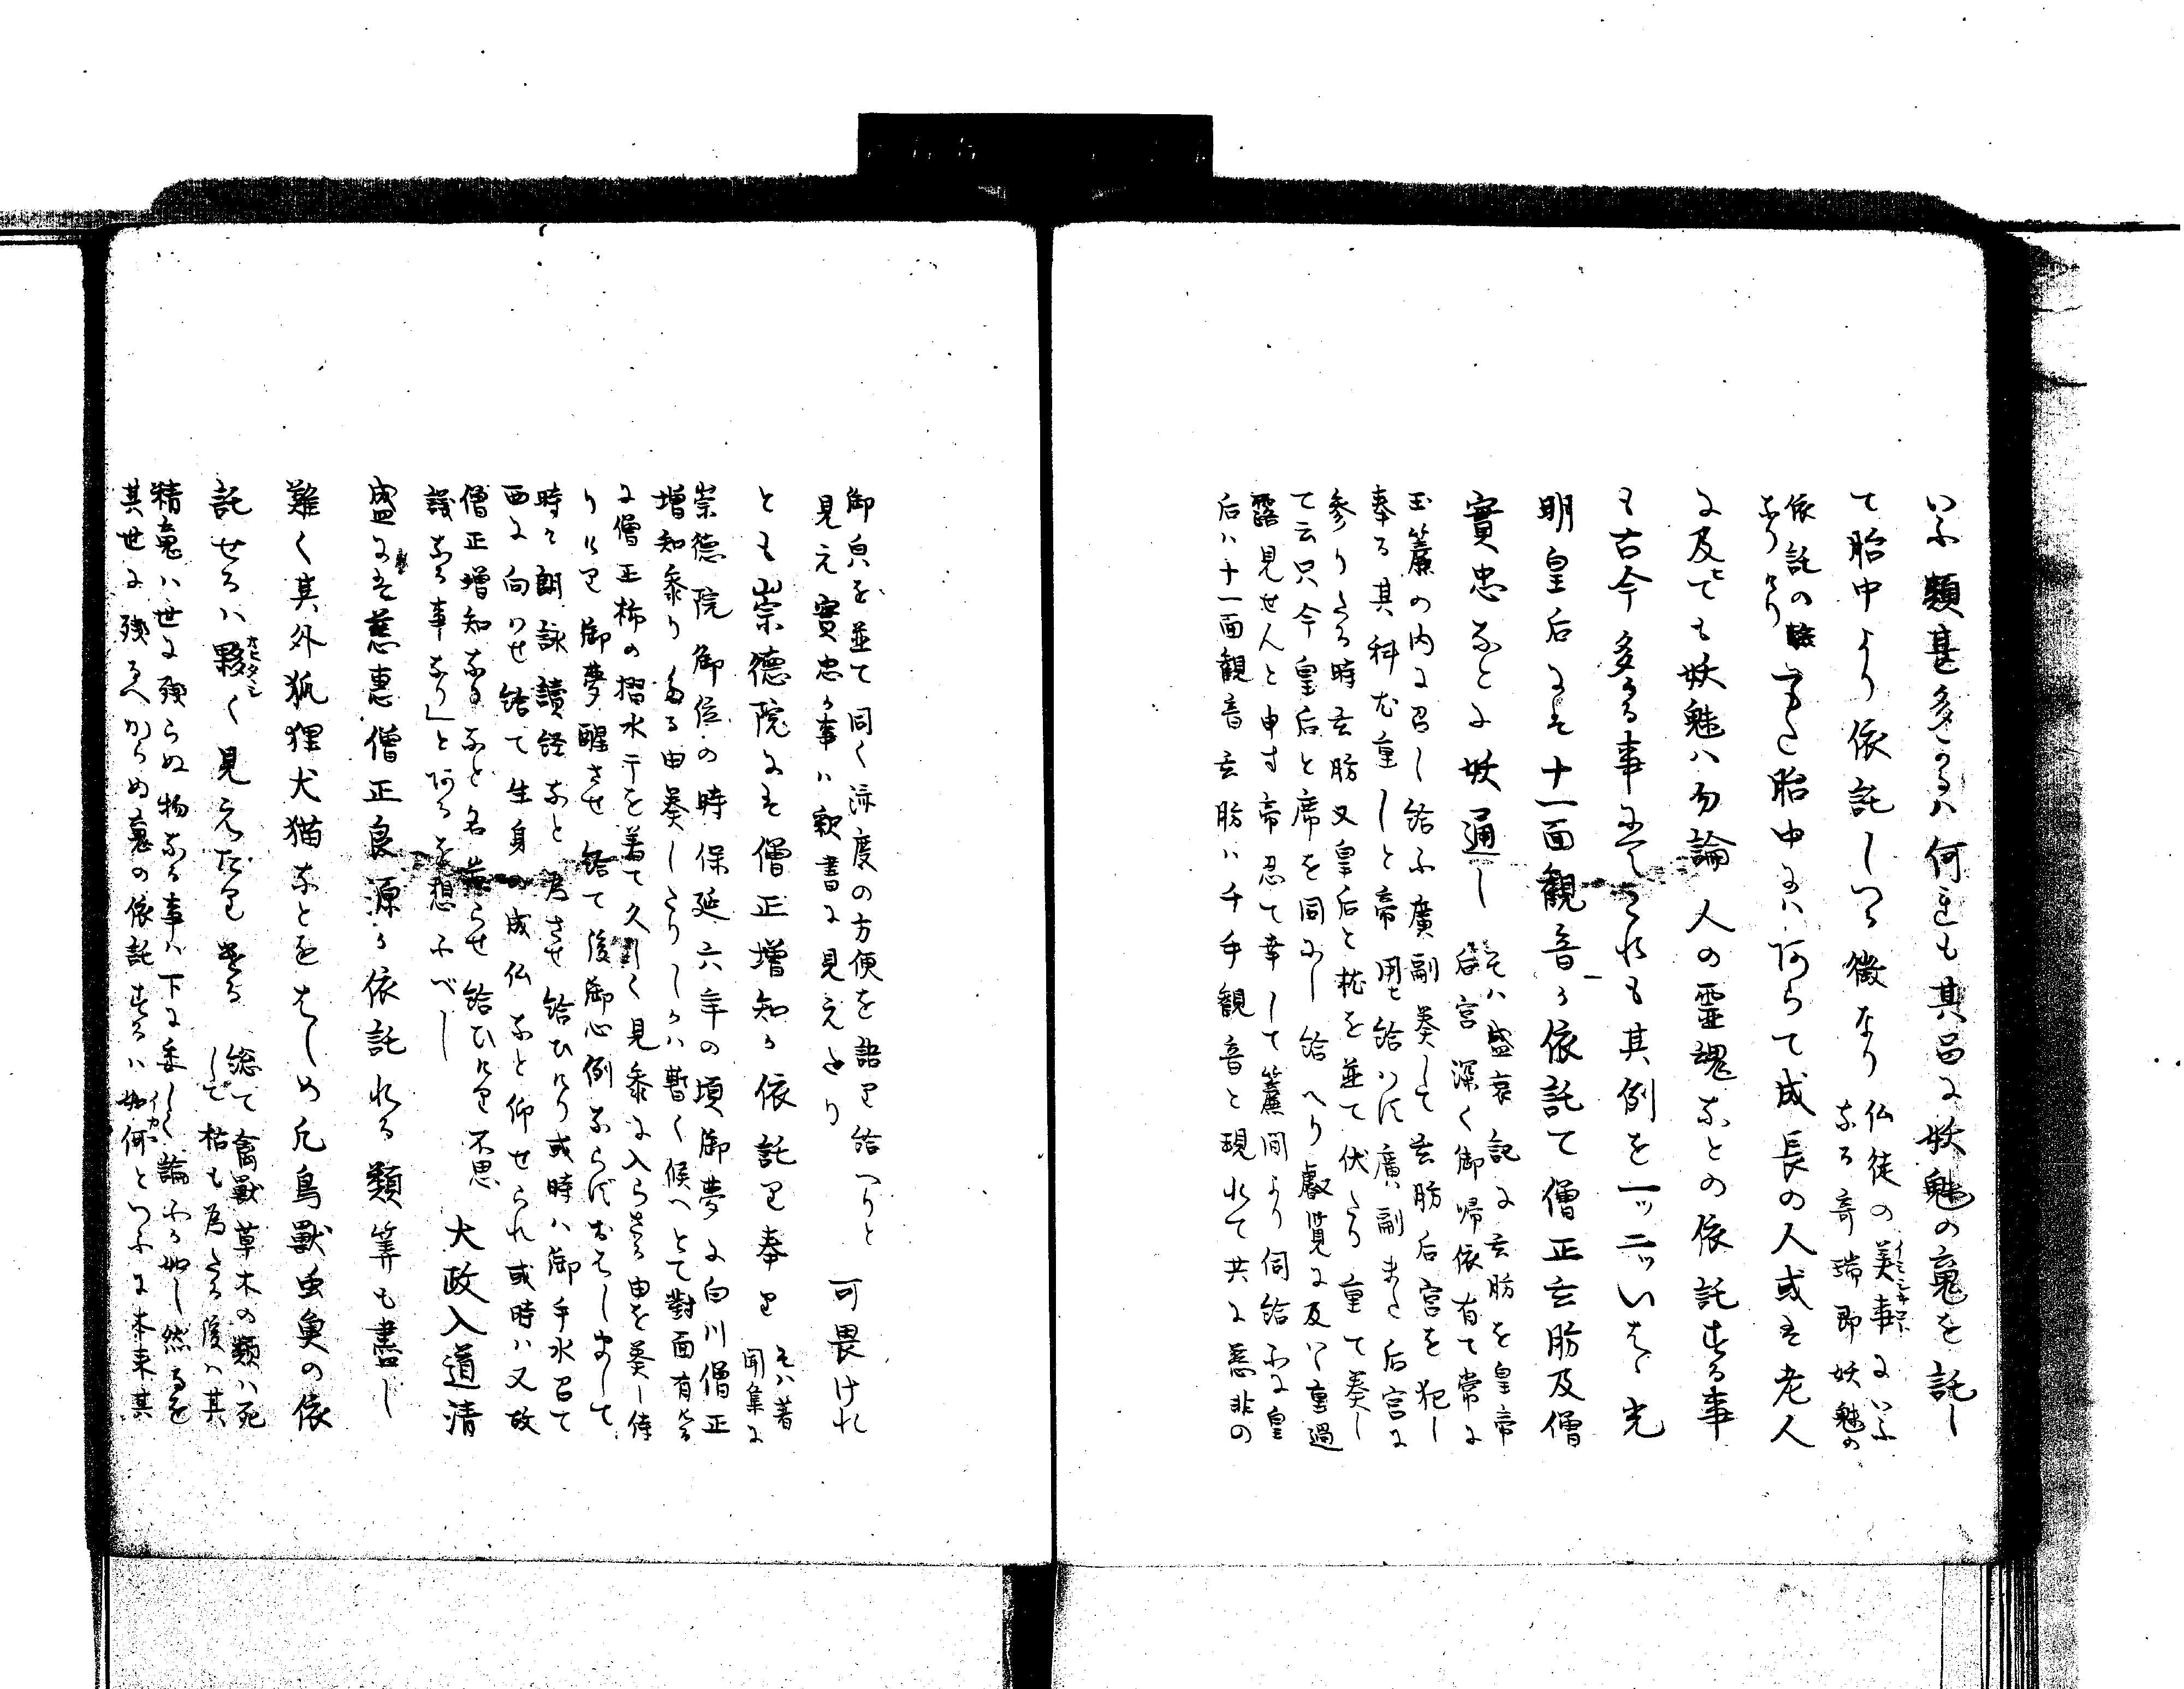 いふ類甚多かるハ何連も其邑に妖魅の竟を託し
て胎中より依託しつる徴なり
仏徒の美事にいふ
なる奇瑞即妖魅の
依託の験
なりけり
また胎中にハ阿らて成長の人或は老人
に及ても妖魅ハ勿論人の霊魂なとの依託せる事
も古今多かる事にてこれも其例を一ッ二ッいはゝ光
明皇后には十一面観音か依託て僧正玄肪及僧
實忠なとに妖通し
そハ盛衰記に玄肪を皇帝
后宮深く御帰依有て常に
玉簾の内に召し給ふ廣副奏して玄肪后宮を犯し
奉る其科尤重しと帝用ヒ給ハす廣副また后宮に
参りたる時玄肪又皇后と枕を並て伏たり重て奏し
て云只今皇后と席を同ふし給へり叡覧に及ハゝ重過
露見せんと申す帝忍て幸して簾間より伺給ふに皇
后ハ十一面観音玄肪ハ千手観音と現れて共に慈悲の
御皃を並て同く済度の方便を語り給へりと
見え實忠か事ハ釈書に見えたり
可畏けれ
とも崇徳院には僧正増知か依託り奉り
そハ著
聞集に
崇徳院御位の時保延六年の頃御夢に白川僧正
増知参りたる由奏したりしかハ暫く候へとて對面有ける
に僧正柿の摺水干を着て久しく見参に入らさる由を奏し侍
りけり御夢醒させ給て後御心例ならすおはしまして
時々朗詠讀経なと為させ給ひけり或時ハ御手水召て
西に向ハせ給て生身の成仏なと仰せられ或時ハ又故
僧正増知なるなと名告らせ給ひけり不思
議なる事なり」と阿るを想ふべし
大政入道清
盛には慈惠僧正良源か依託れる類算も盡し
難く其外狐狸犬猫なとをはしめ凡鳥獣虫魚の依
託せるハ夥く見えたり
総て禽獣草木の類ハ死
して枯も為たる後ハ其
精竟ハ世に残らぬ物なる事ハ下に委しく論ふか如し然るを
其世に残るへからぬ竟の依託せるハ如何といふに本来其